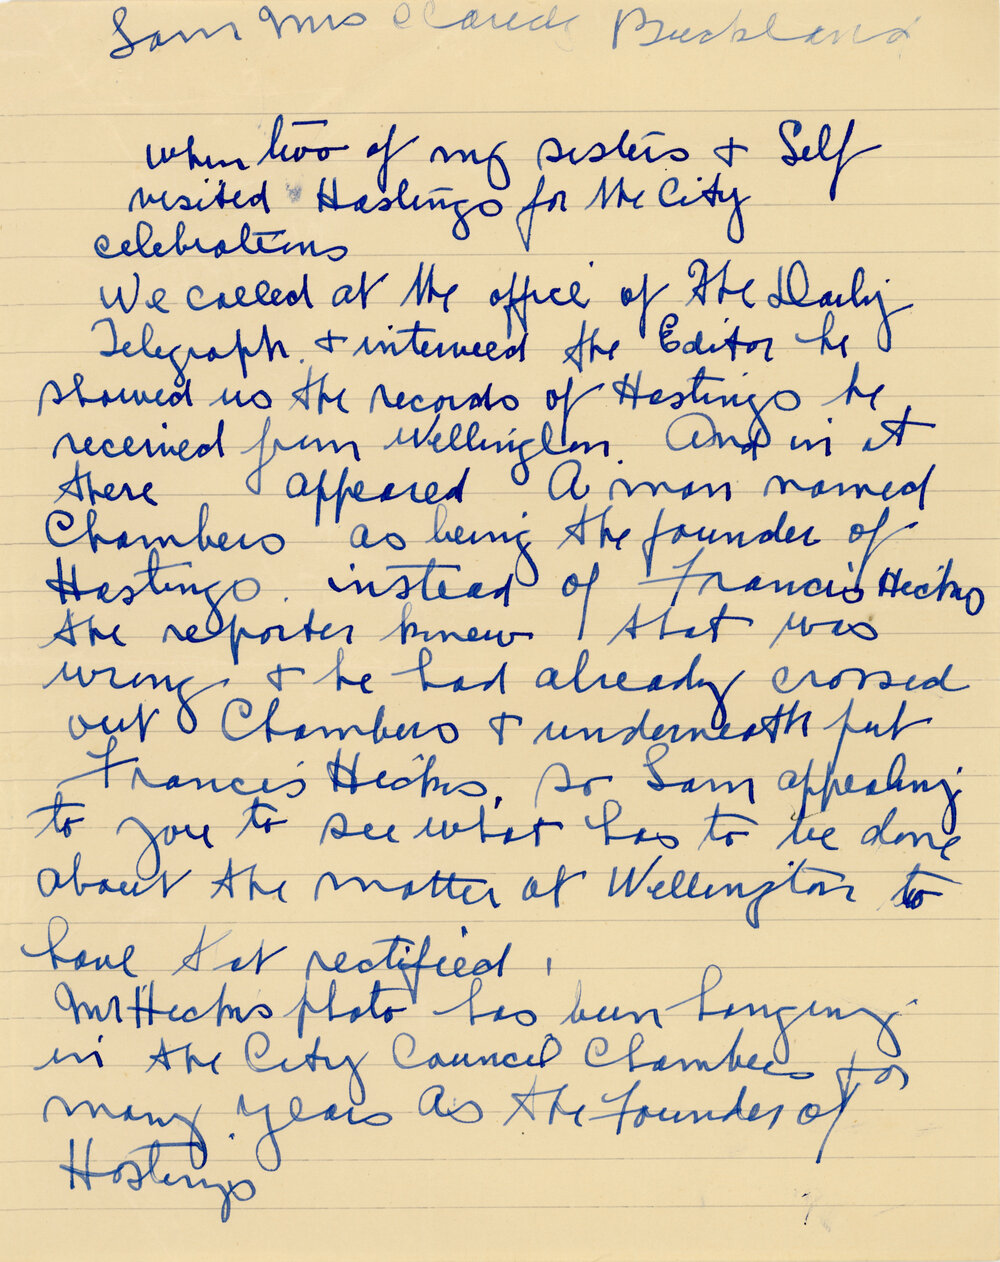 I am Mrs Claude Buckland
when two of my sisters & Self
visited Hastings for the City
celebrations
We called at the office of The Daily
Telegraph. & interveed the Editor he
showed us the records of Hastings he
received from Wellington. And in it
there appeared A man named
Chambers as being the founder of
Hastings. instead of Francis Hicks
the reporter knew that was
wrong & he had already crossed
out Chambers & underneath put
Francis Hicks, so I am appealing
to you to see what has to be done
about the matter at Wellington to
have that rectified.
Mr Hicks photo has been hanging
in the City Council Chambers for
many years As the founder of
Hastings